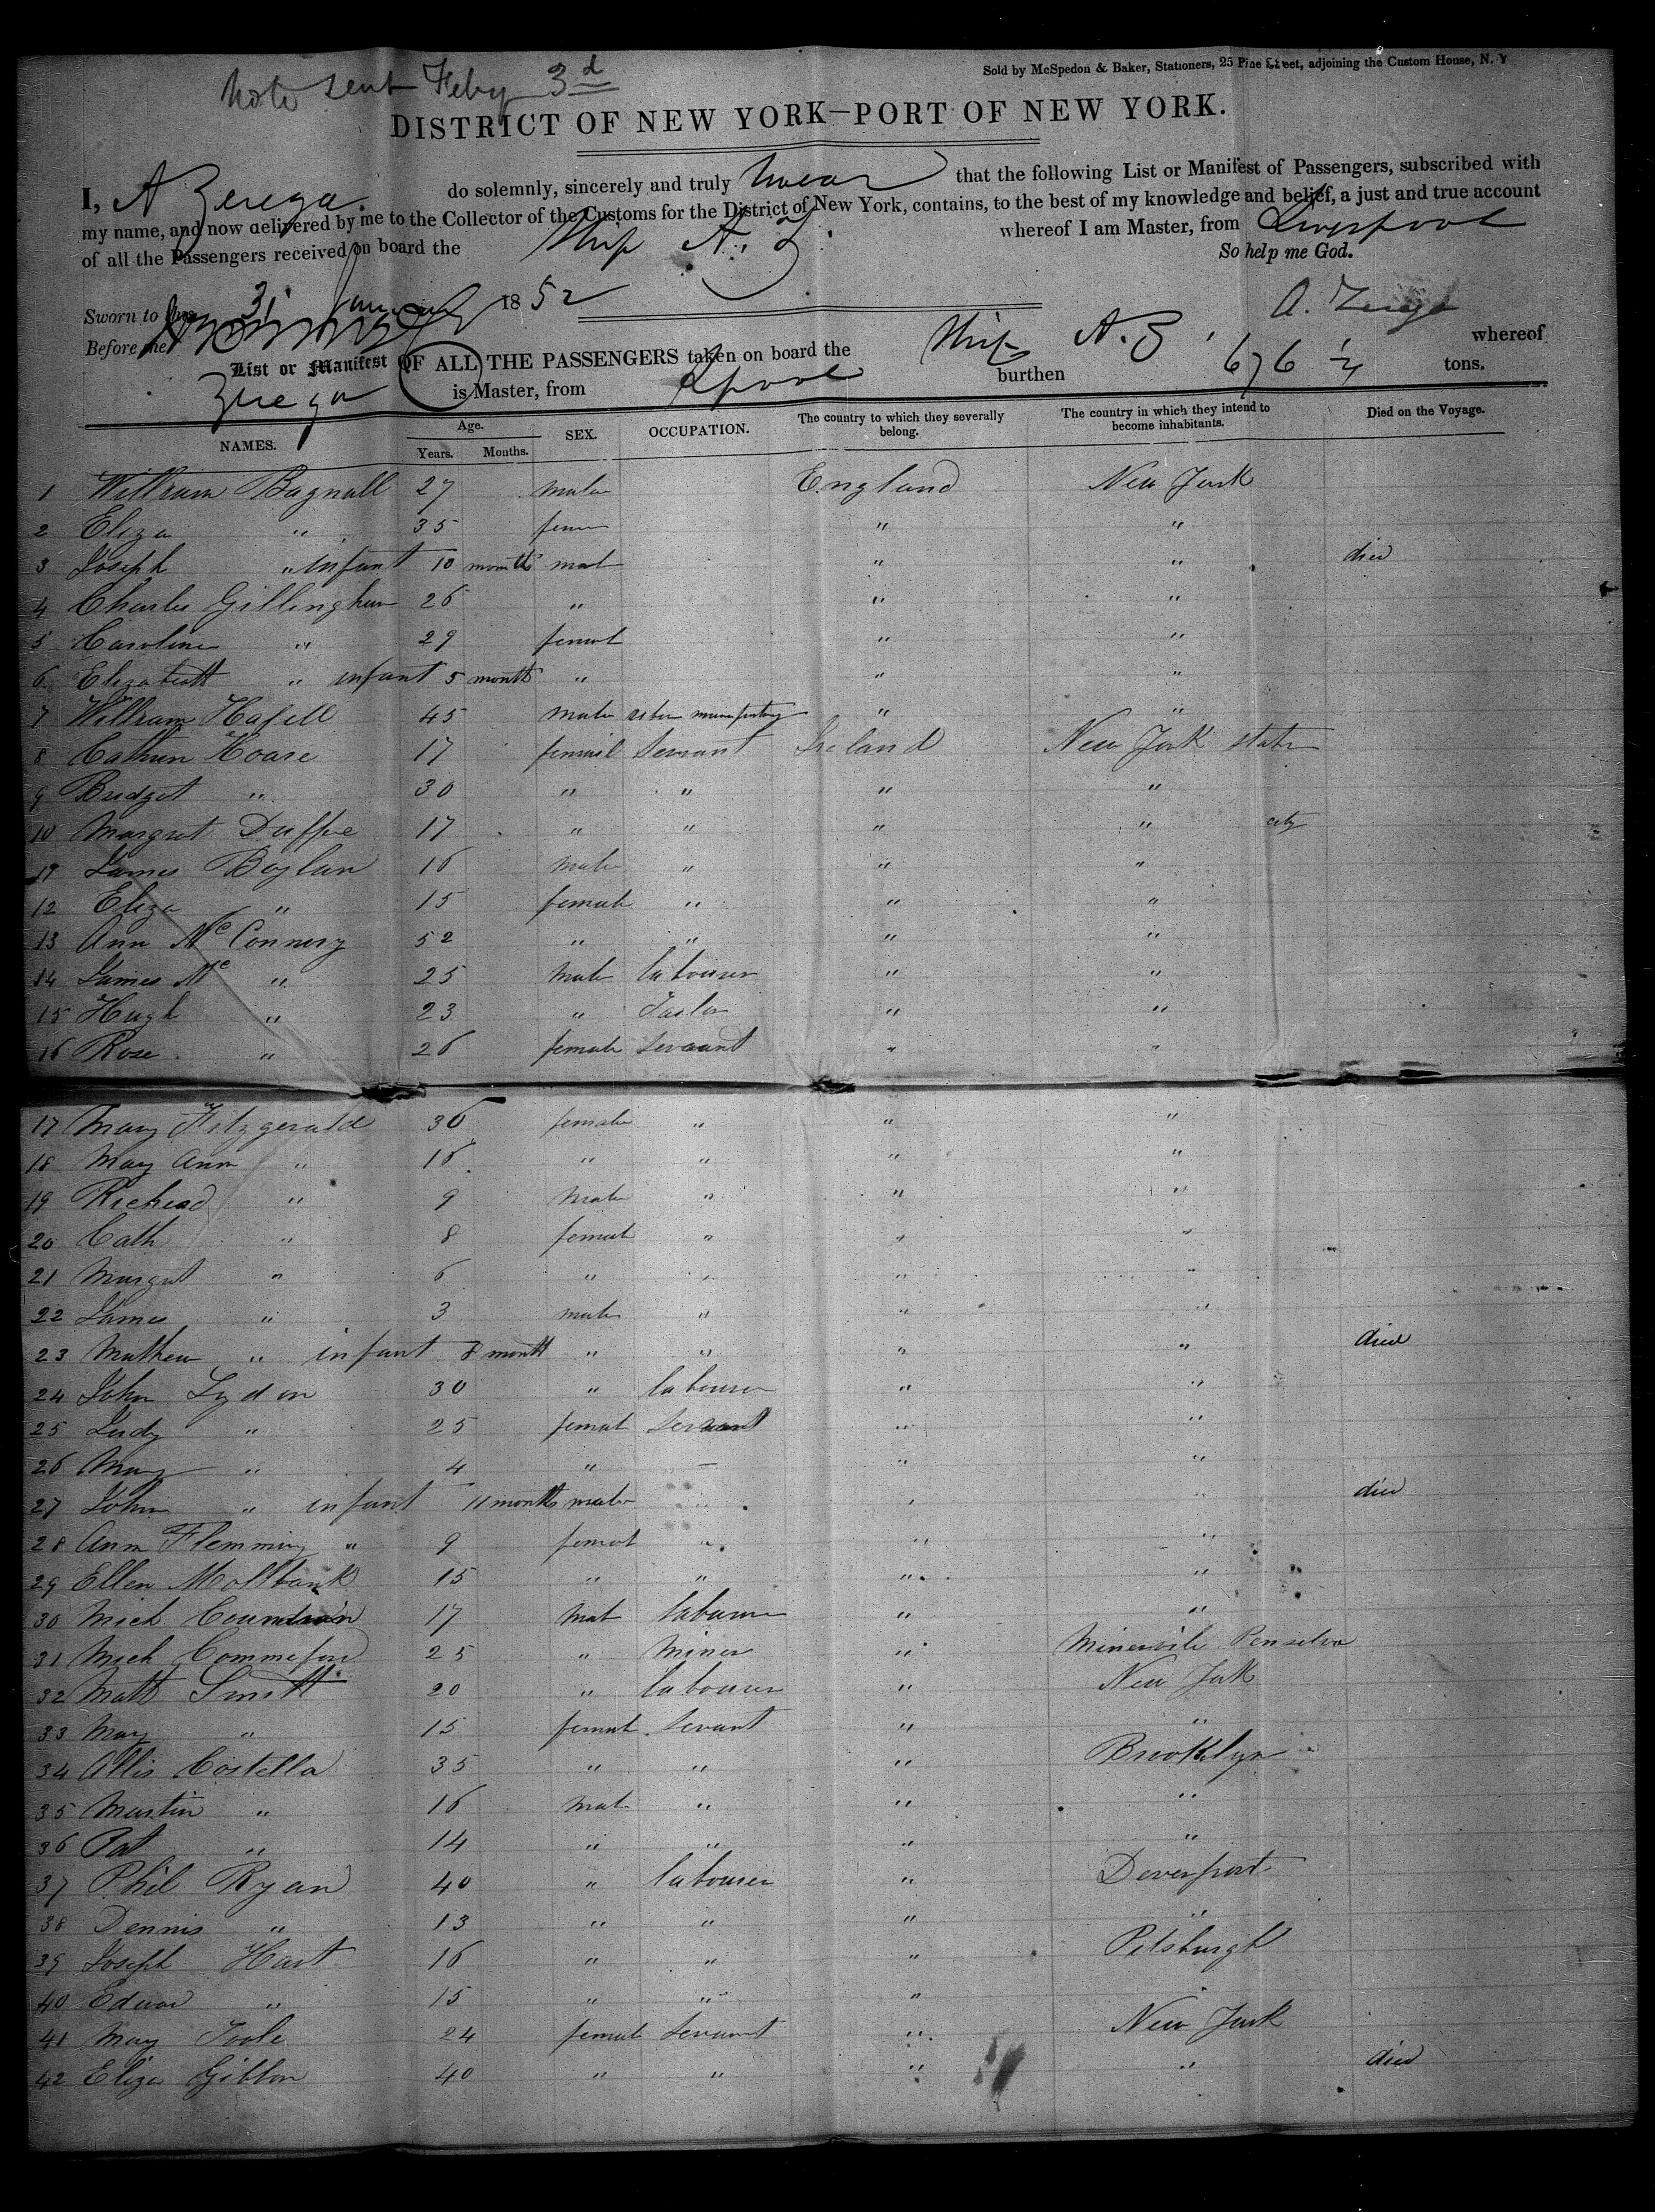 Note sent Feby 3d
Sold by McSpedon & Baker, Stationers, 25 Pine Street, adjoining the Custom House, N. Y
DISTRICT OF NEW YORK—PORT OF NEW YORK.
I, A Zerega. do solemnly, sincerely and truly swear that the following List or Manifest of Passengers, subscribed with
my name, and now delivered by me to the Collector of the Customs for the District of New York, contains, to the best of my knowledge and belief, a just and true account
of all the Passengers received on board the Ship A. Z. whereof I am Master, from Liverpool
So help me God.
Sworn to this 31 January 1852
A. Zerega
Before me
List or Manifest OF ALL THE PASSENGERS taken on board the Ship A. Z. whereof
Zerega is Master, from Lpool burthen 676 tons.
NAMES. Age. Years. Months. SEX. OCCUPATION. The country to which they severally belong. The country in which they intend to become inhabitants. Died on the Voyage.
1 William Bagnall 27 male England New York
2 Eliza " 35 fem " "
3 Joseph " infant 10 months mal " " died
4 Charles Gillingham 26 " " "
5 Caroline " 29 femal " "
6 Elizabeth " infant 5 months " " "
7 William 45 male " "
8 Cathrin Hoare 17 femail Servant Ireland New York state
9 Bridget " 30 " " " "
10 Margret Duffe 17 " " " " city
11 James Boylan 16 male " " "
12 Eliza " 15 female " " "
13 Ann Mc Connery 52 " " " "
14 James Mc " 25 male labourer " "
15 Hugh " 23 " Tailor " "
16 Rose " 26 female servant " "
17 Mary Fitzgerald 36 female " " "
18 May Ann " 16 " " " "
19 Richead " 9 male " " "
20 Cath " 8 femal " " "
21 Margret " 6 " " " "
22 James " 3 male " " "
23 Mathew " infant 8 month " " " " died
24 John Lydon 30 " labourer " "
25 Judy " 25 femal servant " "
26 Mary " 4 " — " "
27 John " infant 11 months male " " " died
28 Ann Flemming " 9 femal " " "
29 Ellen 15 " " " "
30 Mich 17 mal labourer " "
31 Mich Commeford 25 " miner " Minersvile Penselva
32 Matt Smith 20 " labourer " New York
33 May " 15 female servant " "
34 Allis Costella 35 " " " Brooklyn
35 Martin " 16 mal " " "
36 Pat " 14 " " " "
37 Phil Ryan 40 " labourer " Devenport
38 Dennis " 13 " " " "
39 Joseph Hart 16 " " " Pitsburgh
40 Edwar " 15 " " " "
41 May Toole 24 female servant " New York
42 Eliza Gibbon 40 " " " " died